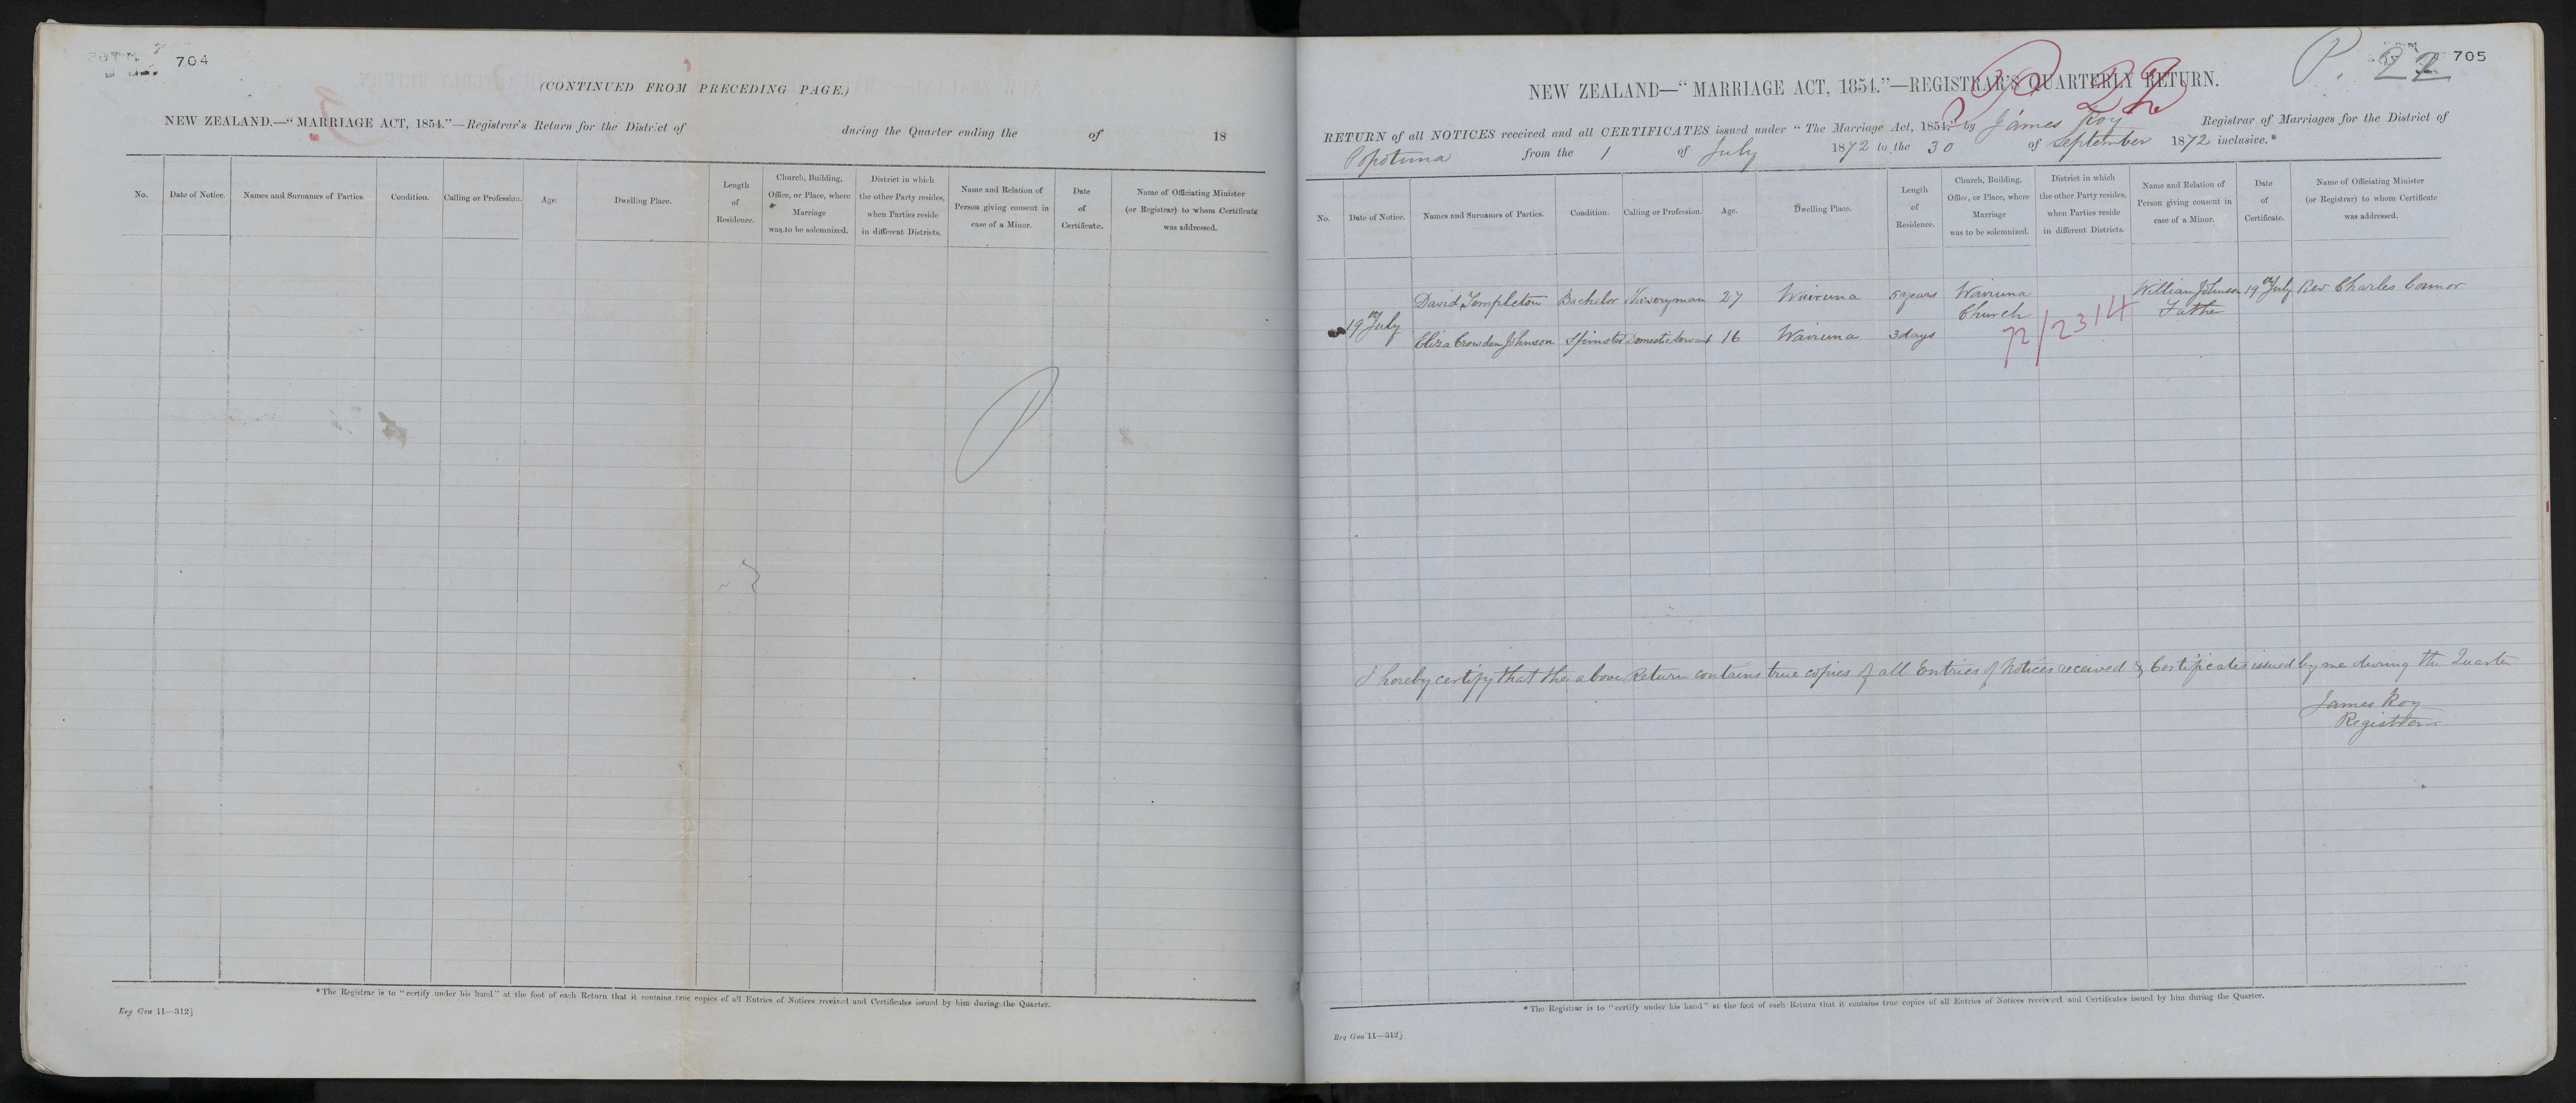 704
(CONTINUED FROM PRECEDING PAGE.)
NEW ZEALAND.—"MARRIAGE ACT, 1854."—Registrar's Return for the District of during the Quarter ending the of 18
No.
Date of Notice.
Names and Surnames of Parties.
Condition.
Calling or Profession.
Age.
Dwelling Place.
Length
of
Residence.
Church, Building,
Office, or Place, where
Marriage
was to be solemnized.
District in which
the other Party resides,
when Parties reside
in different Districts.
Name and Relation of
Person giving consent in
case of a Minor.
Date
of
Certificate.
Name of Officiating Minister
(or Registrar) to whom Certificate
was addressed.
*The Registrar is to "certify under his hand" at the foot of each Return that it contains true copies of all Entries of Notices received and Certificates issued by him during the Quarter.
Reg Gen 11—312]
P. 22
705
NEW ZEALAND—"MARRIAGE ACT, 1854."—REGISTRAR'S QUARTERLY RETURN.
RETURN of all NOTICES received and all CERTIFICATES issued under "The Marriage Act, 1854," by James Roy Registrar of Marriages for the District of
Popotuna from the 1 of July 1872 to the 30 of September 1872 inclusive.*
No.
Date of Notice.
Names and Surnames of Parties.
Condition.
Calling or Profession.
Age.
Dwelling Place.
Length
of
Residence.
Church, Building,
Office, or Place, where
Marriage
was to be solemnized.
District in which
the other Party resides,
when Parties reside
in different Districts.
Name and Relation of
Person giving consent in
case of a Minor.
Date
of
Certificate.
Name of Officiating Minister
(or Registrar) to whom Certificate
was addressed.
David Templeton Bachelor Nurseryman 27 Wairuna 5 years Wairuna William Johnson 19 July Rev Charles Connor
19 July Church Father
Eliza Crowden Johnson Spinster Domestic Servant 16 Wairuna 3 days 72/2314
I hereby certify that the above Return contains true copies of all Entries of Notices received & Certificates issued by me during the Quarter
James Roy
Registrar
*The Registrar is to "certify under his hand" at the foot of each Return that it contains true copies of all Entries of Notices received and Certificates issued by him during the Quarter.
Reg Gen 11—312]